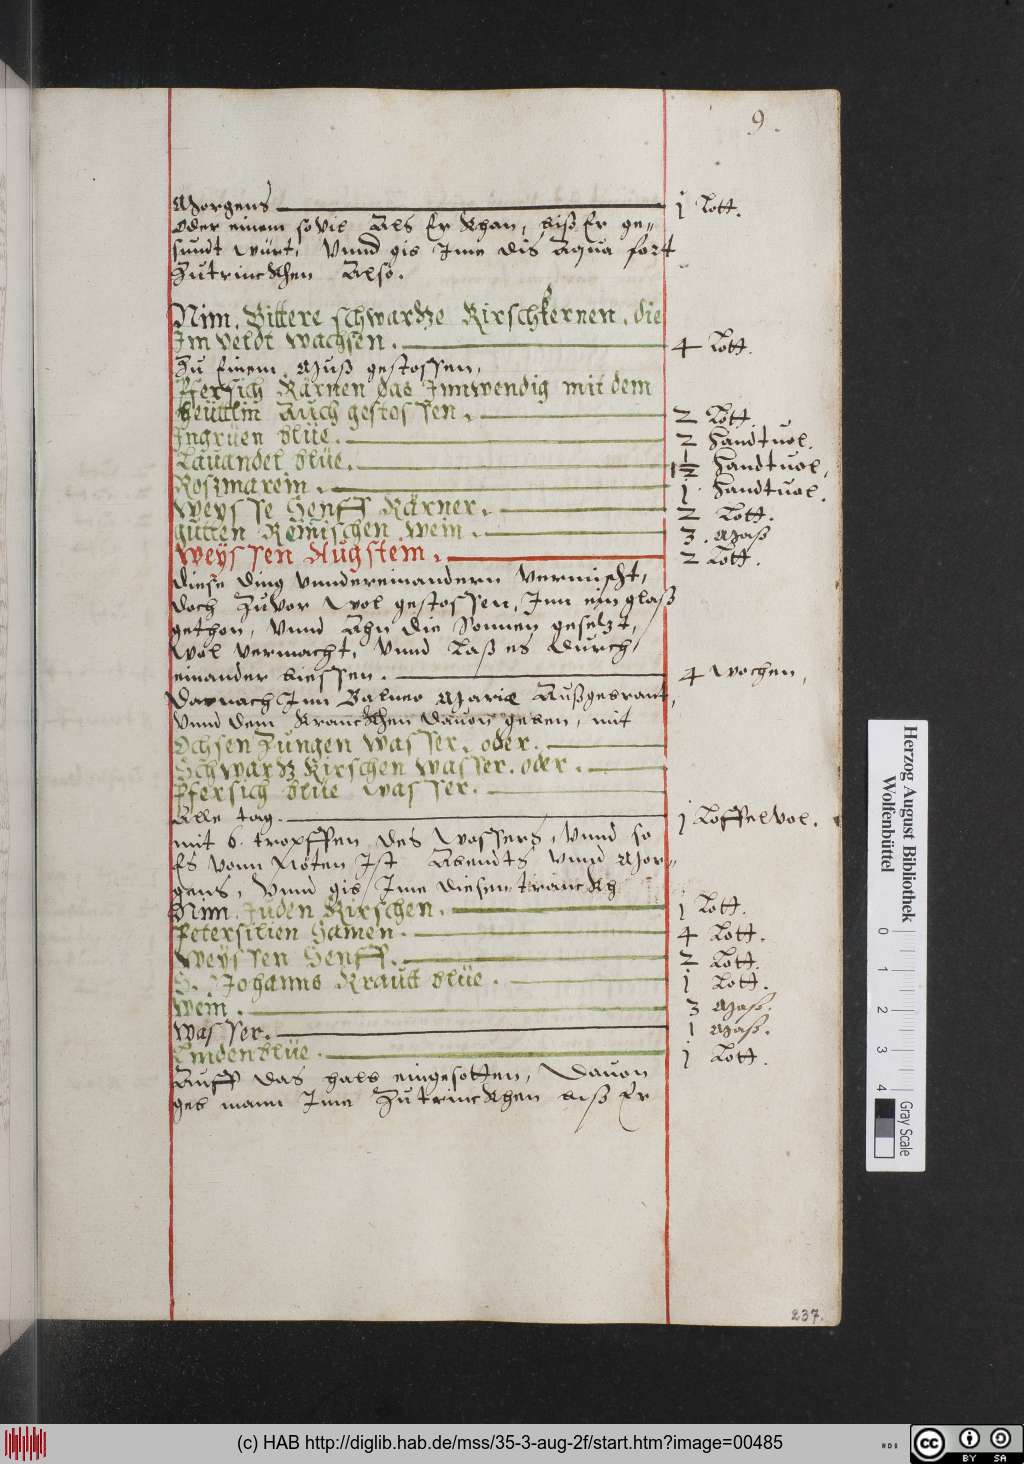 9.
Morgens 1 Lott.
oder einem so vil Als Er Khan, biß Er ge=
sundt württ, Vnnd gib Ime dis Aqua fort
Zutrinckhen Also.
Nim. Bittere schwartze Kirschkernen. die
Im veldt wachsen. 4 Lott.
Zu Einem Muß gestossen,
Pfersich Kärnen das Innwendig mit dem
heüttlin Auch gestossen. 2 Lott
Ingrüen blüe. 2 Handtvol.
Lauandel blüe. 1½ Handtvol,
Roszmarein. 1 Handtvol.
Weysse Senff Kärner. 2 Lott.
gutten Remischen wein. 3. Mass
Weyssen Augstein. 2 Lott.
diese ding vnndereinandern Vermischt,
doch Zuvor Wol gestossen, Inn ein glaß
gethon, Vnnd Ahn die Sonnen gesetzt,
Wol vermacht, Vnnd Laß es Durch
einander biessen. 4 Wochen,
Darnach Inn Balneo Mariæ Außgebrant,
Vnnd dem Kranckhen dauon geben, mit
Ochsen Zungen wasser. oder.
Schwartz Kirschen wasser. oder.
Pfersich blüe wasser.
Alle tag. 1 Löffelvol.
mit 6. tropffen des Wassers, Vnnd so
Es vonn Nöten Ist Abendts Vnnd Mor=
gens, Vnnd gib Ime diesen tranckh
Nim. Juden Kirschen. 1 Lott.
Petersilien Samen. 4 Lott.
Weyssen Senff. 2 Lott.
S. Johanns Krautt blüe. 1 Lott.
Wein. 3 Mass.
Wasser. 1 Mass.
Lindenblüe. 1 Lott.
Auff das halb eingesotten, Dauon
geb mann Ime Zutrinckhen biß Er
237.
Herzog August Bibliothek
Wolfenbüttel
0 1 2 3 4
Gray Scale
(c) HAB http://diglib.hab.de/mss/35-3-aug-2f/start.htm?image=00485
cc BY SA